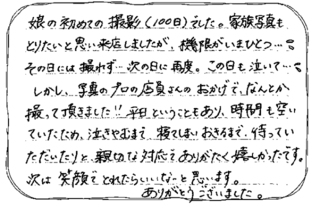 娘の初めての撮影(100日)でした。家族写真も
とりたいと思い来店しましたが、機限がいまひとつ…
その日には撮れず…次の日に再度。この日も泣いて…
しかし、写真のプロの店員さんのおかげで、なんとか
撮って頂きました!!平日ということもあり、時間も空い
ていたため、泣きやむまで、寝てしまいおきるまで、待ってい
ただいたりと、親切な対応でありがたく嬉しかったです。
次は笑顔でとれたらいいなーと思います。
ありがとうございました。